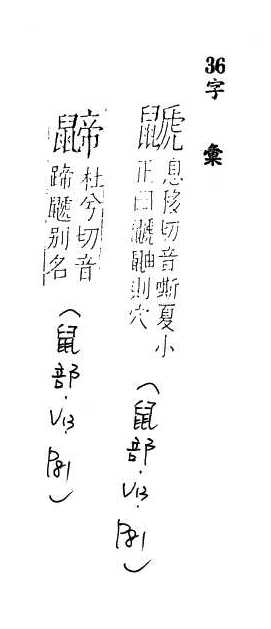 36字 彙
鼶
息移切音嘶夏小
正曰鼶鼬則穴
(鼠部.V13.P81)
杜兮切音
蹄鼶别名
(鼠部.V13.P81)